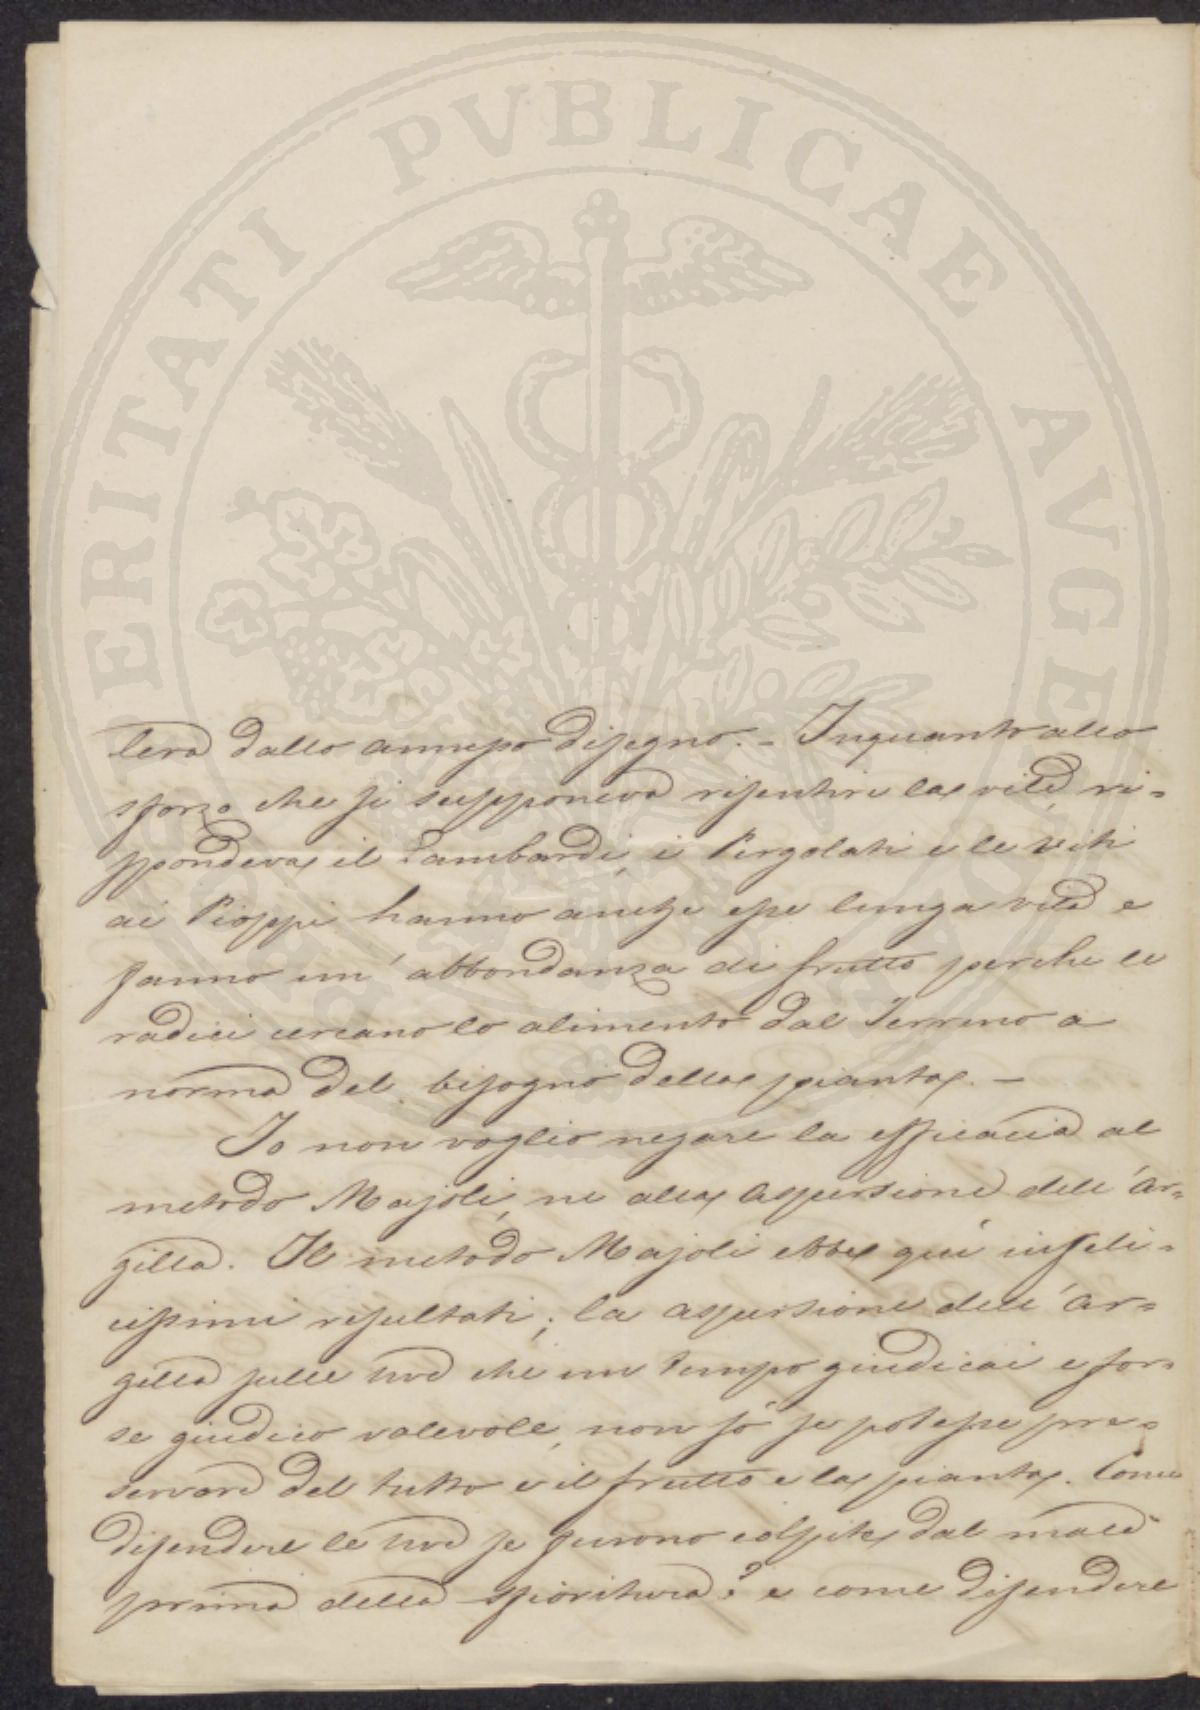 PROSPERITATI PVBLICAE AVGENDAE
lerà dallo annesso disegno. - Inquanto allo
sforzo che si supponeva risentire la vite, ri-
spondeva il Lambardi, i Pergolati e le viti
ai Pioppi hanno anch'esse lunga vita e
fanno un' abbondanza di frutto perchè le
radici cercano lo alimento dal Terreno a
norma del bisogno della pianta. -
Io non voglio negare la efficacia al
metodo Majoli, nè alla aspersione dell'ar-
gilla. Il metodo Majoli ebbe quì infeli-
cissimi resultati; la aspersione dell'ar-
gilla sulle uve che un tempo giudicai e for-
se giudico valevole, non sò se potesse pre-
servare del tutto e il frutto e la pianta. Come
difendere le uve se furono colpite dal male
prima della sfioritura? e come difendere